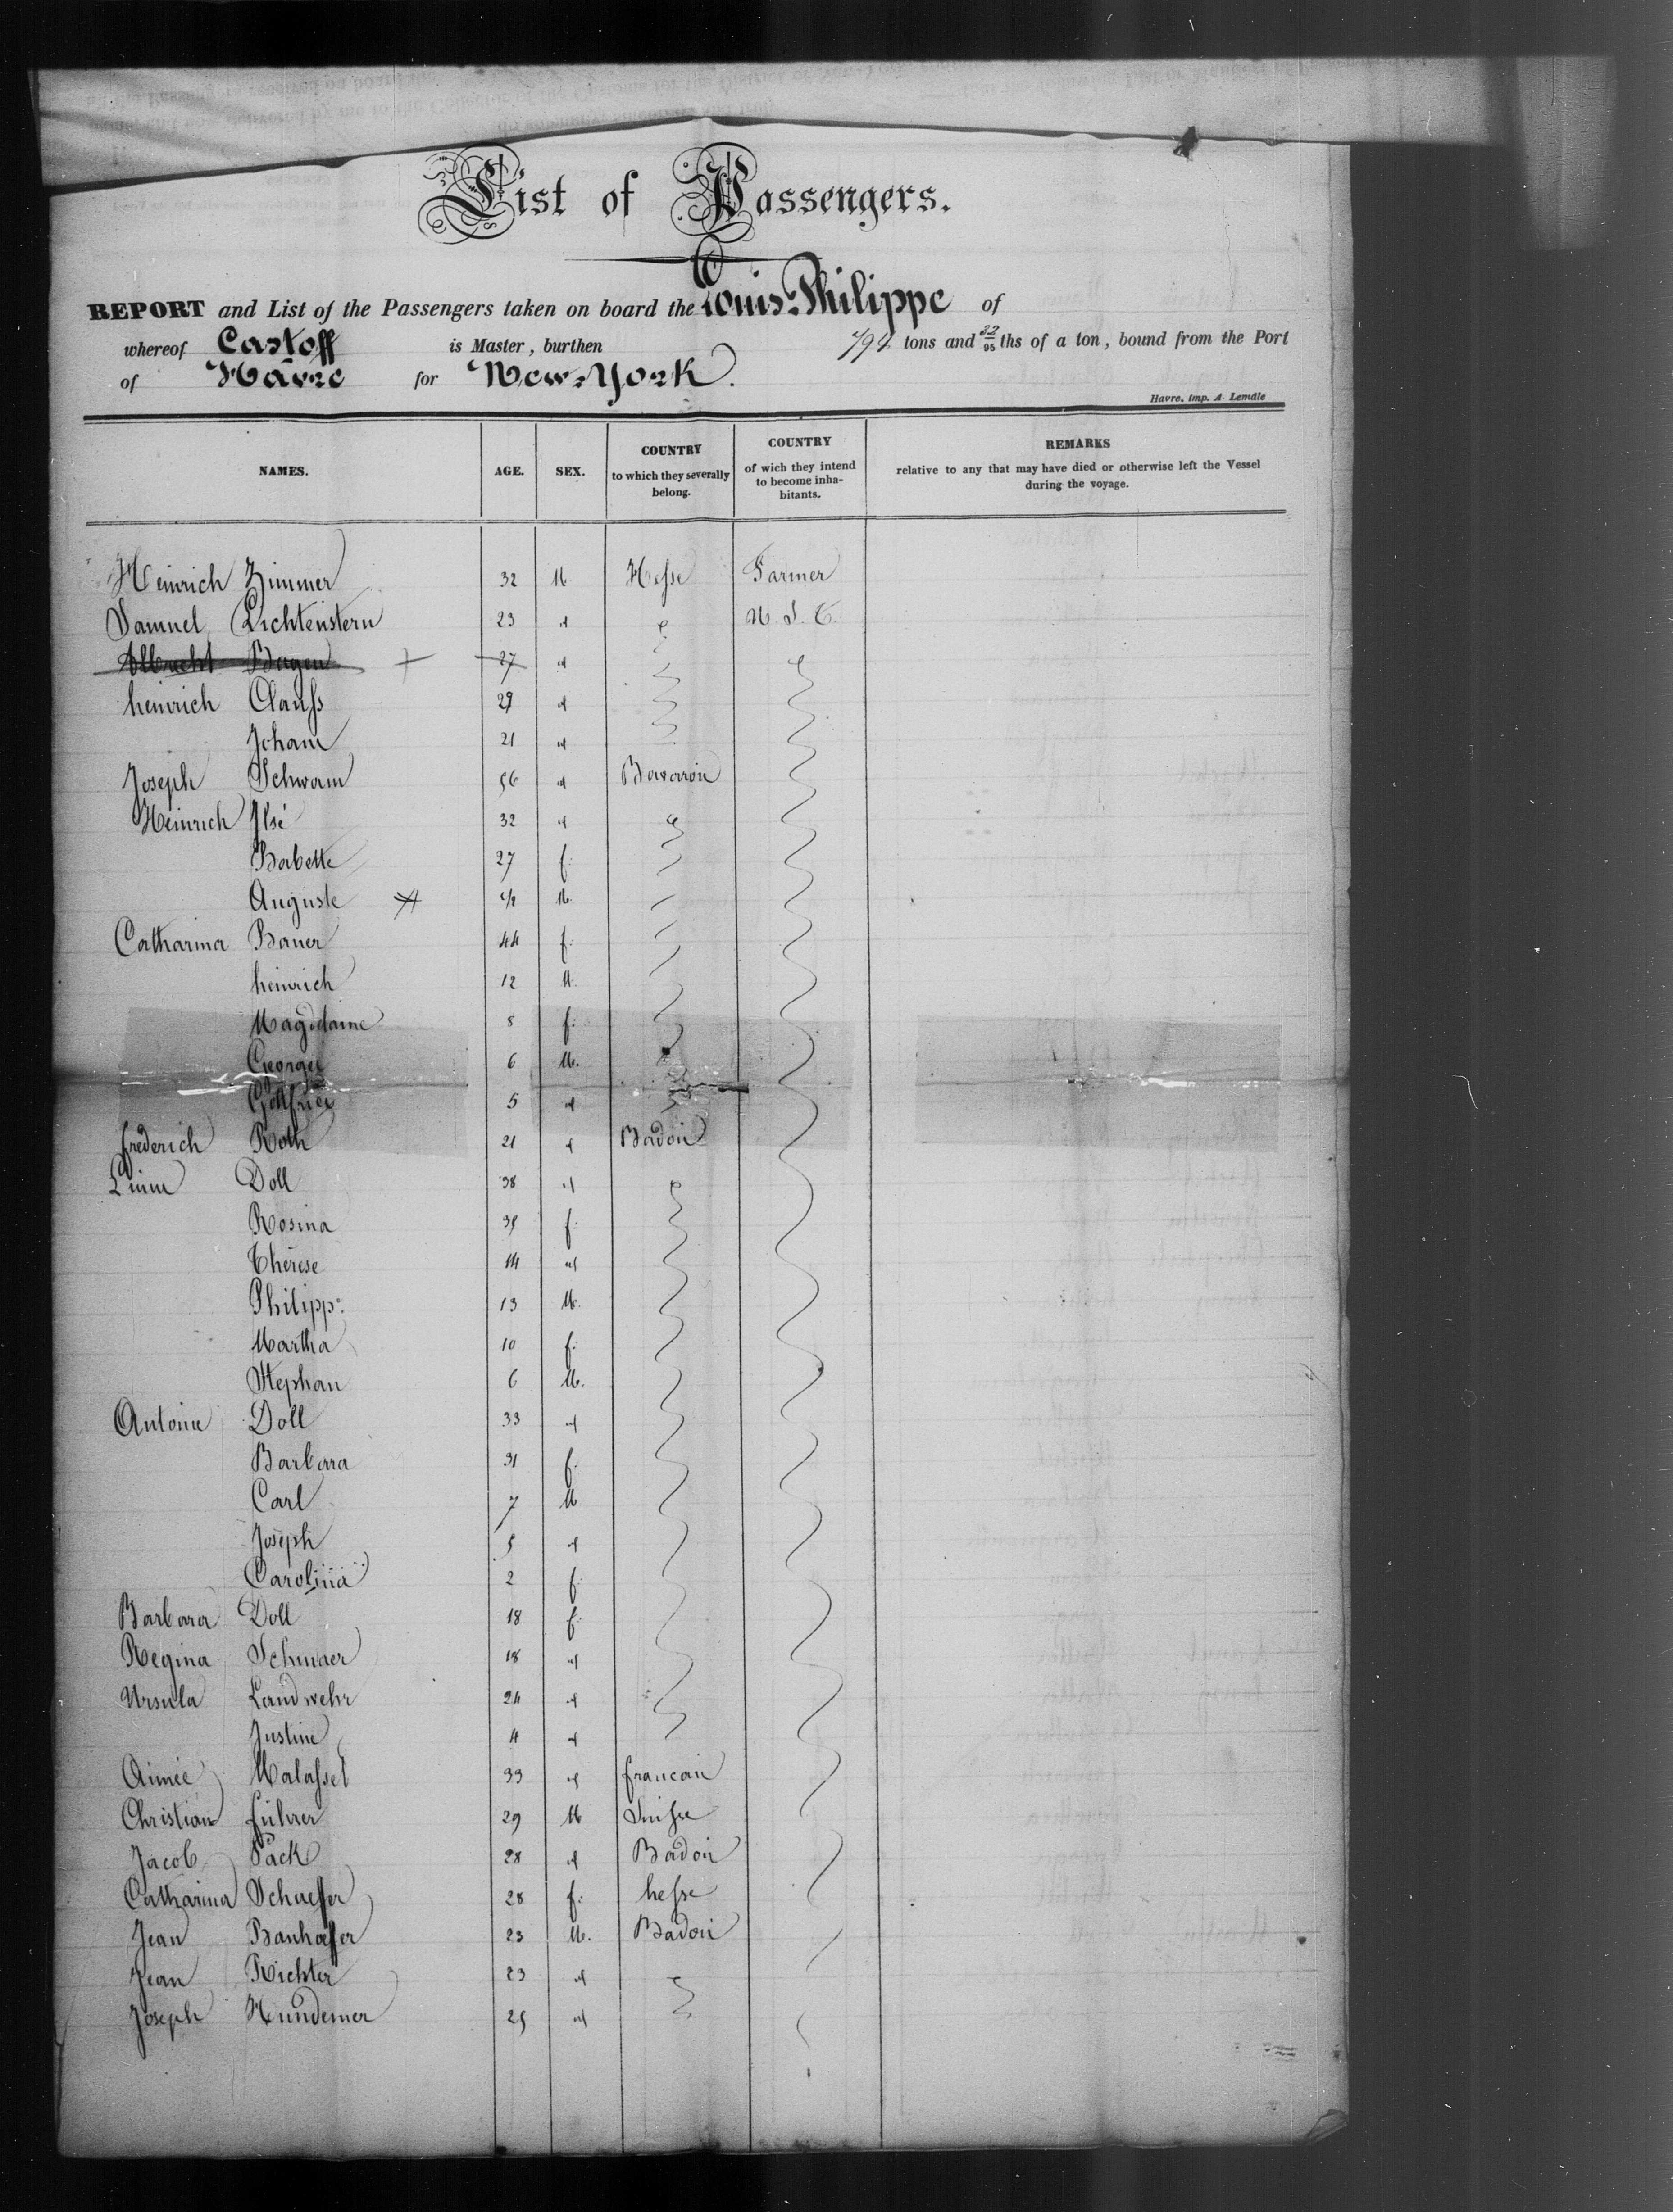 List of Passengers.
REPORT and List of the Passengers taken on board the Louis-Philippe of
whereof Castoff is Master, burthen 794 tons and 32/95 ths of a ton, bound from the Port
of Havre for New-York.
Havre. Imp. A. Lemâle
NAMES. AGE. SEX. COUNTRY to which they severally belong. COUNTRY of wich they intend to become inhabitants. REMARKS relative to any that may have died or otherwise left the Vessel during the voyage.
Heinrich Zimmer 32 M Hesse Farmer
Samuel Lichtenstern 23 "
27 "
heinrich Clauss 29 "
Johann 21 "
Joseph Schwam 56 " Bavaroin
Heinrich Ilsé 32 "
Babette 27 f.
Auguste M.
Catharina Bauer 44 f.
heinrich 12 M.
8 f.
George 6 M.
Gottfried 5 "
frederich Roth 21 " Badois
Doll 38 "
Rosina 35 f.
Thérèse 14 "
Philippe 13 M.
Martha 10 f.
Stephan 6 M.
Antoine Doll 33 "
Barbara 31 f.
Carl 7 M
Joseph 5 "
Carolina 2 f.
Barbara Doll 18 f.
Regina 18 "
Ursula Landwehr 24 "
Justine 4 "
Aimée Malassel 33 " francais
Christian führer 29 M Suisse
Jacob Pack 28 " Badois
Catharina Schaeffer 28 f. hesse
Jean Banhofer 23 M. Badois
Jean Richter 23 "
Joseph Hundemer 25 "